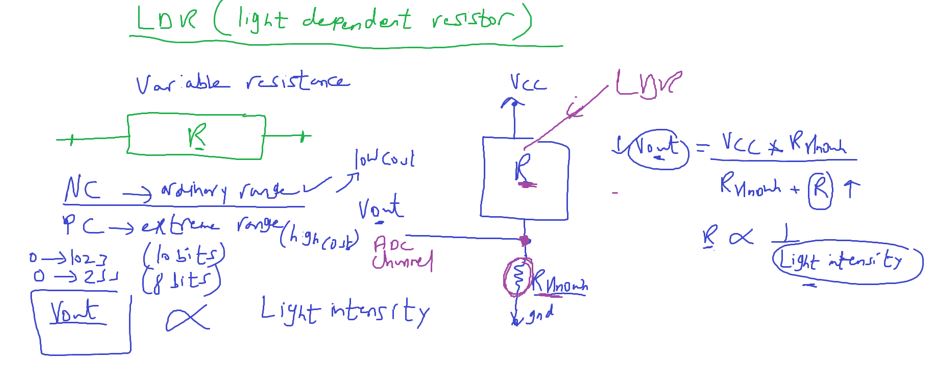 LDR (light dependent resistor)
Variable resistance
R
NC → ordinary range
low cost
PC → extreme range (high cost)
0 → 1023 (10 bits)
0 → 255 (8 bits)
Vout ∝ Light intensity
VCC
LDR
i
R
Vout
ADC
Channel
Rknown
gnd
↓ Vout = VCC * Rknown
Rknown + R ↑
R ∝ 1
Light intensity